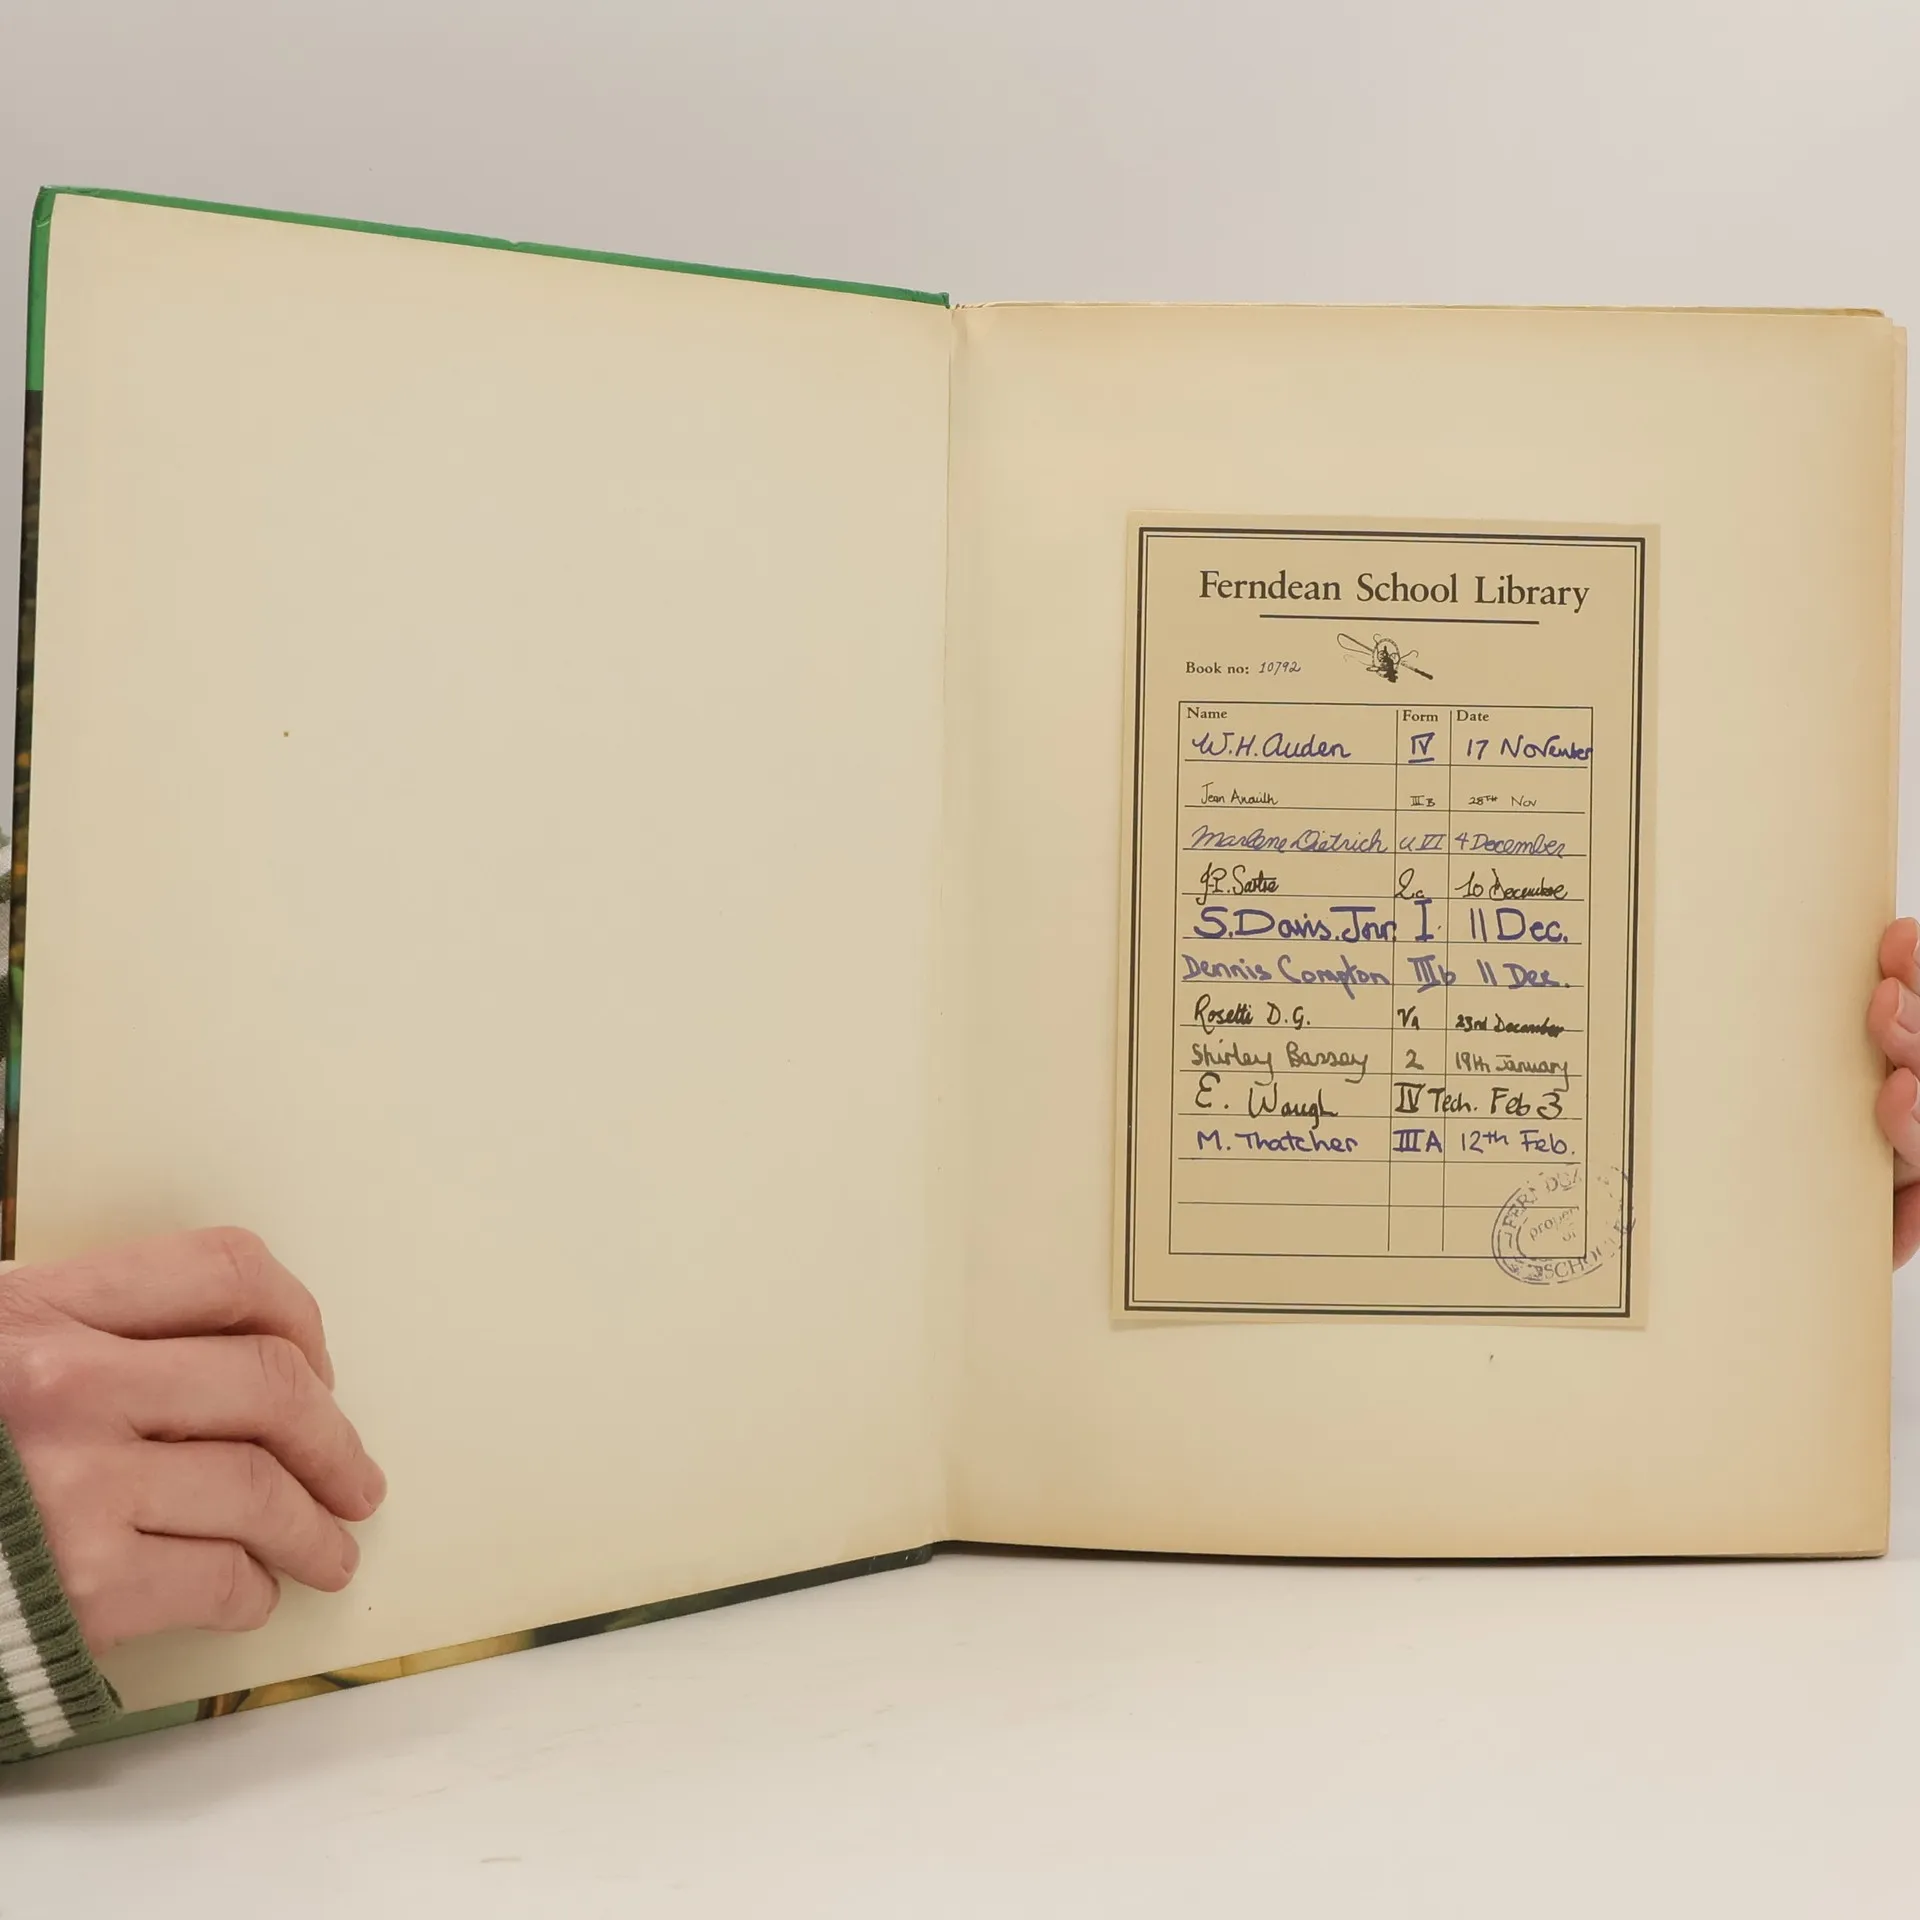 Ferndean School Library
Book no: 10792
Name Form Date
W.H. Auden IV 17 November
Jean Anouilh III B 28TH Nov
Marlene Dietrich U VI 4 December
J.P. Sartre 2c 10 Decembre
S. Davis. Jnr. I. 11 Dec.
Dennis Compton IIIb 11 Dec.
Rosetti D.G. VA 23rd December
Shirley Bassey 2 19th January
E. Waugh IV Tech. Feb 3
M. Thatcher III A 12th Feb.
SCHOOL